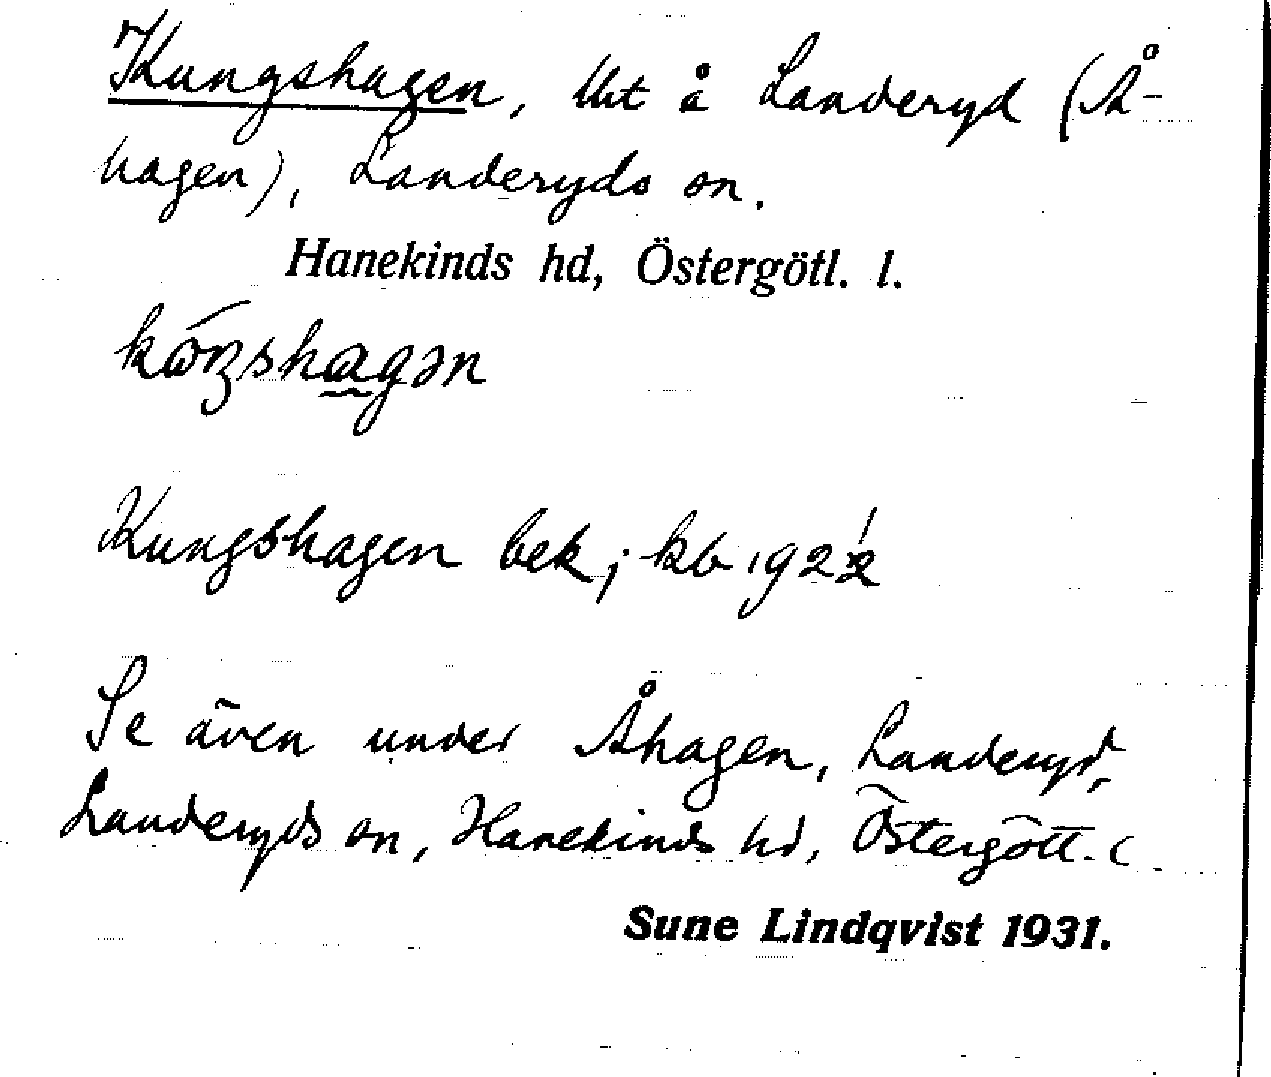 Kungshagen, lht å Landeryd (Å-
hagen), Landeryds sn.
Hanekinds hd, Östergötl. l.
Kungshagen bek; kb
Se även under Åhagen, Landeryd,
Landeryds sn, Hanekinds hd, Östergötl. l
Sune Lindqvist 1931.